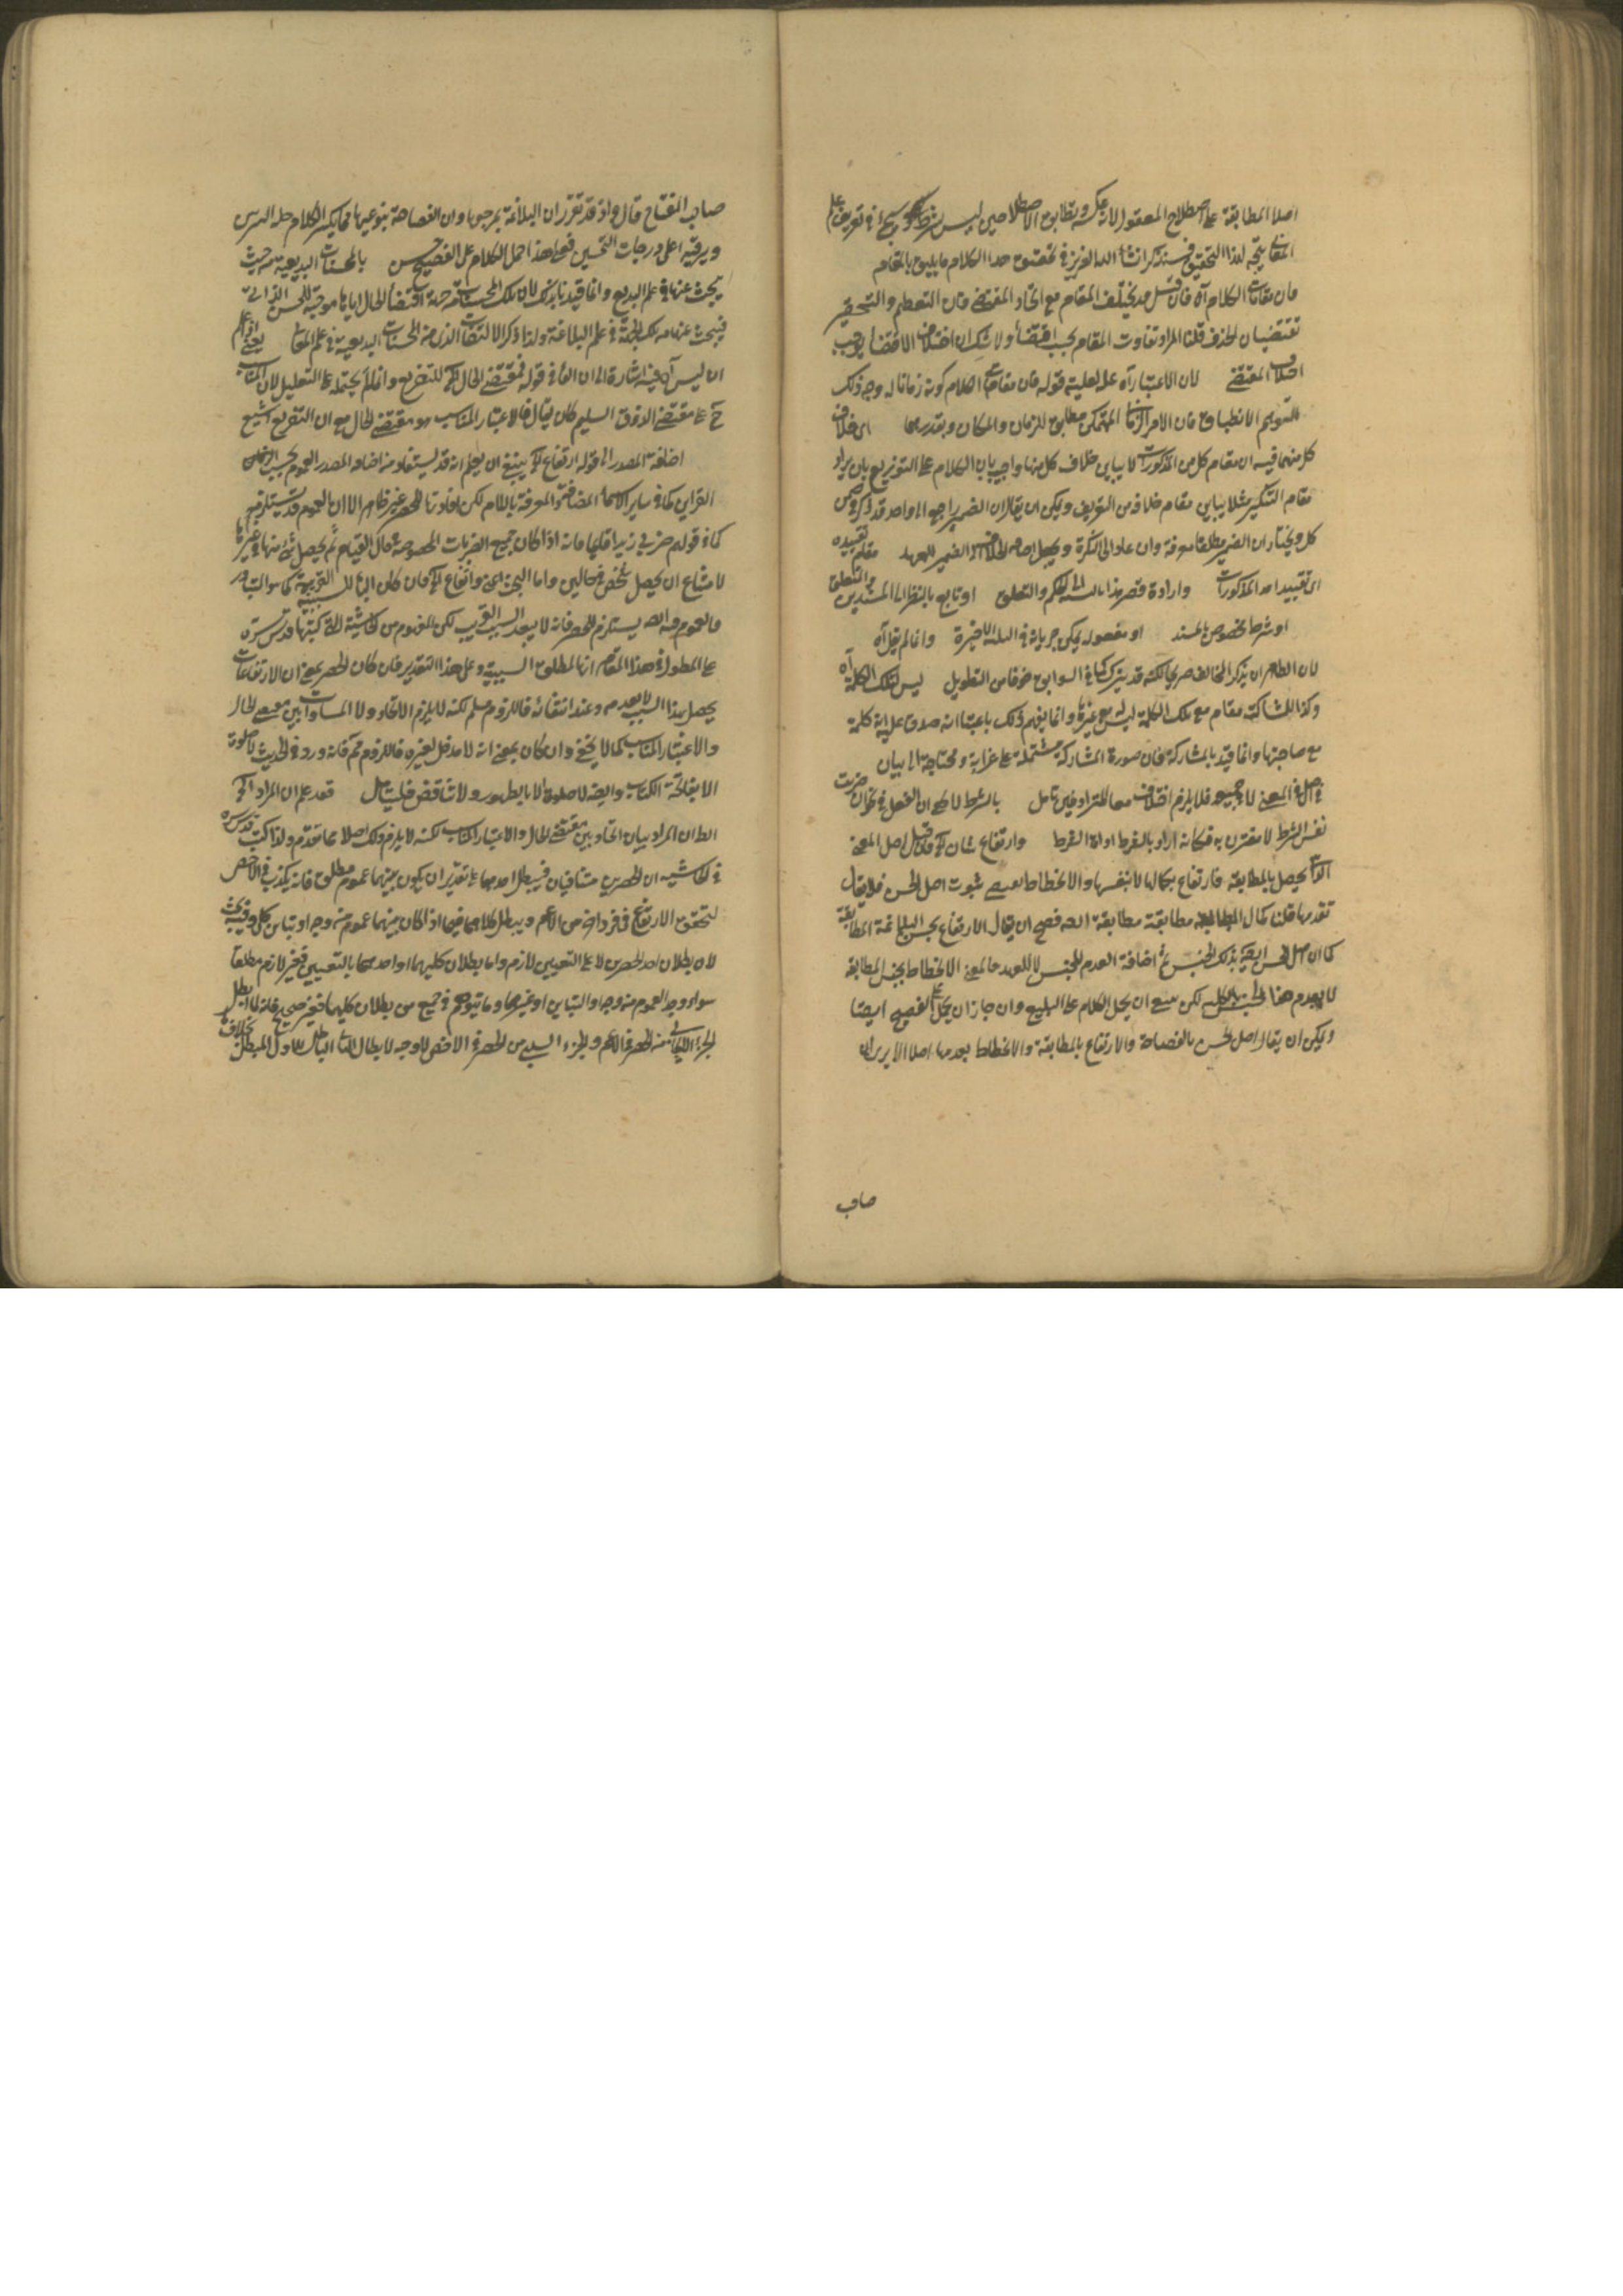 اصلا المطابقة على اصطلاح المعقول لانه عكسه وتطابق الاصطلاحين ليس بشرط وسيجئ في تعريف علم
المعاني يتجه لهذا التحقيق وسنذكر انشاء الله العزيز في تحقيق هذا الكلام ما يليق بالمقام
فان مقامات الكلام آه فان قيل قد يختلف المقام مع اتحاد المقتضى فان التعظيم والتحقير
تقتضيان الحذف قلنا المراد تفاوت المقام بحسب اقتضاء ولا شك ان اختلاف الاقتضاء يوجب
اختلاف المقتضى لان الاعتبار آه علة لعلية قوله فان مقامات الكلام كونه زمانا له وجه ذلك
التوهم الانطباق فان الامر الزماني المتمكن مطابق للزمان والمكان وبقدرهما اى خلاف
كل منهما فيه ان مقام كل من المذكورات لا يباين خلاف كل منها واجيب بان الكلام على التوزيع بان يراد
مقام التنكير مثلا يباين مقام خلافه من التعريف ويمكن ان يقال ان الضمير راجع الى واحد قد ذكر في ضمن
كل ويختار ان الضمير مطلقا معرفة وان عاد الى النكرة ويجعل اضافة الخلاف الى الضمير للعهد مقام تقييده
اى تقييد احد المذكورات وارادة قصر هذا بالنسبة الى الحكم والتعلق او تابع بالنظر الى المسندين والتعلق
او شرط مخصوص بالمسند او مفعوله يمكن جريانه في الثلاثة الاخيرة وانما لم يقل آه
لان الظاهر ان يذكر المخالف صريحا لكنه قد يترك كما في السوابق خوفا من التطويل ليس لتلك الكلمة آه
وكذا المشاكلة مقام مع تلك الكلمة ليس مع غيرها وانما يفهم ذلك باعتبار انه صدق عليه كلمة
مع صاحبتها وانما قيد بالمشاركة فان صورة المشاركة مشتملة على غرابة ومحتاجة الى بيان
في اصل المعنى لا في جميعه فلا يلزم اختلاف معنى المترادفين تأمل بالشرط لا يخ ان الفعل في ان ضربت
نفس الشرط لا مقترن به فكانه اراد بالشرط اداة الشرط وارتفاع شان آه قيل اصل المعنى
انما يحصل بالمطابقة فارتفاع بكمالها لا بنفسها والانحطاط يقتضى ثبوت اصل الحسن فلا يقال
تقدرها قلنا كمال المطابقة مطابقة مطابقة الفصيح فصح ان يقال الارتفاع بحسن البلاغة المطابقة
كما ان اصل الحسن ايضا بذلك الجنس ثم اضافة العدم للجنس لا للعهد فالمعنى الانحطاط بجنس المطابقة
لا بعدم هذا الجنس بالكلية لكن يمتنع ان يحمل الكلام على البليغ وان جاز ان يحمل على الفصيح ايضا
ويمكن ان يقال اصل الحسن بالفصاحة والارتفاع بالمطابقة والانحطاط بعدمها اصلا الا يرى ان
صاحب
صاحب المفتاح قال واذ قد تقرر ان البلاغة بمرجعيها وان الفصاحة بنوعيها مما يكسو الكلام حلة التزيين
ويرقيه اعلى درجات التحسين فعلى هذا حمل الكلام على الفصيح حسن بالمحسنات البديعية من حيث
يبحث عنها في علم البديع وانما قيد نا بذلك لان تلك المحسنات من جهة اقتضاء الحال اياها موجبة للحسن الذاتي
فيبحث عنها من تلك الجهة في علم البلاغة ولذا ذكر الالتفات الذي من المحسنات البديعية في علم المعاني يعنى اذا علم
ان ليس آه فيه اشارة الى ان الفاء في قوله فمقتضى الحال آه للتفريع وانما لم يحمله على التعليل لان المناسب
ح على مقتضى الذوق السليم كان يقال فالاعتبار المناسب هو مقتضى الحال مع ان التفريع اشيع
اضافة المصدر الى قوله ارتفاع آه ينبغي ان يعلم انه قد يستفاد من اضافة المصدر العموم بحسب
القراين كما في ساير الاسماء المضافة والمعرفة باللام لكن افادتها للحصر غير ظاهر الا ان العموم قد يستلزمه
كما في قولهم ضربي زيدا قائما فانه اذا كان جميع الضربات المخصوصة في حال القيام لم يحصل شئ منها في غيرها
لامتناع ان يحصل شخص في حالين واما البحث اعنى وارتفاع آه فان كان الباء للسببية القريبة كما هو المتبادر
فالعموم فيه ايضا يستلزم الحصر فانه لا يتعدد السبب القريب لكن المفهوم من الحاشية التى كتبها قدس سره
على المطول في هذا المقام انها لمطلق السببية وعلى هذا التقدير فان كان الحصر بمعنى ان الارتفاعات
يحصل بهذا السبب لا بعدمه وعند انتفائه فاللزوم مسلم لكنه لا يلزم الاتحاد ولا المساوات بين مقتضى الحال
والاعتبار المناسب كما لا يخفى وان كان بمعنى انه لا مدخل لغيره فاللزوم مم فانه ورد في الحديث لا صلوة
الا بفاتحة الكتاب وايضا لا صلوة الا بطهور ولا تناقض فليتأمل فقد علم ان المراد آه
الظ ان المراد بيان اتحاد بين مقتضى الحال والاعتبار المناسب لكنه لا يلزم ذلك اصلا مما تقدم ولذا كتب قدس سره
في الحاشية ان الحصرين متنافيان فيبطل احدهما على تقدير ان يكون بينهما عموم مطلق فانه يكذب في الاخص
لتحقق الارتفاع في فرد اخر من الاعم ويبطل كلاهما فيما اذا كان بينهما عموم من وجه او تباين كلي وفيه بحث
لان بطلان احد الحصرين لا على التعيين لازم واما بطلان كليهما او احدهما بالتعيين فغير لازم مطلقا
سواء وجد العموم من وجه او التباين او غيرهما وما يتوهم في جميع من بطلان كليهما فغير صحيح فانه لما ابطل
الجزء الايجابي من الحصر في الاعم والجزء السلبي من الحصر في الاخص لا وجه لابطال الثاني الباطل للاول المبطل بخلافه